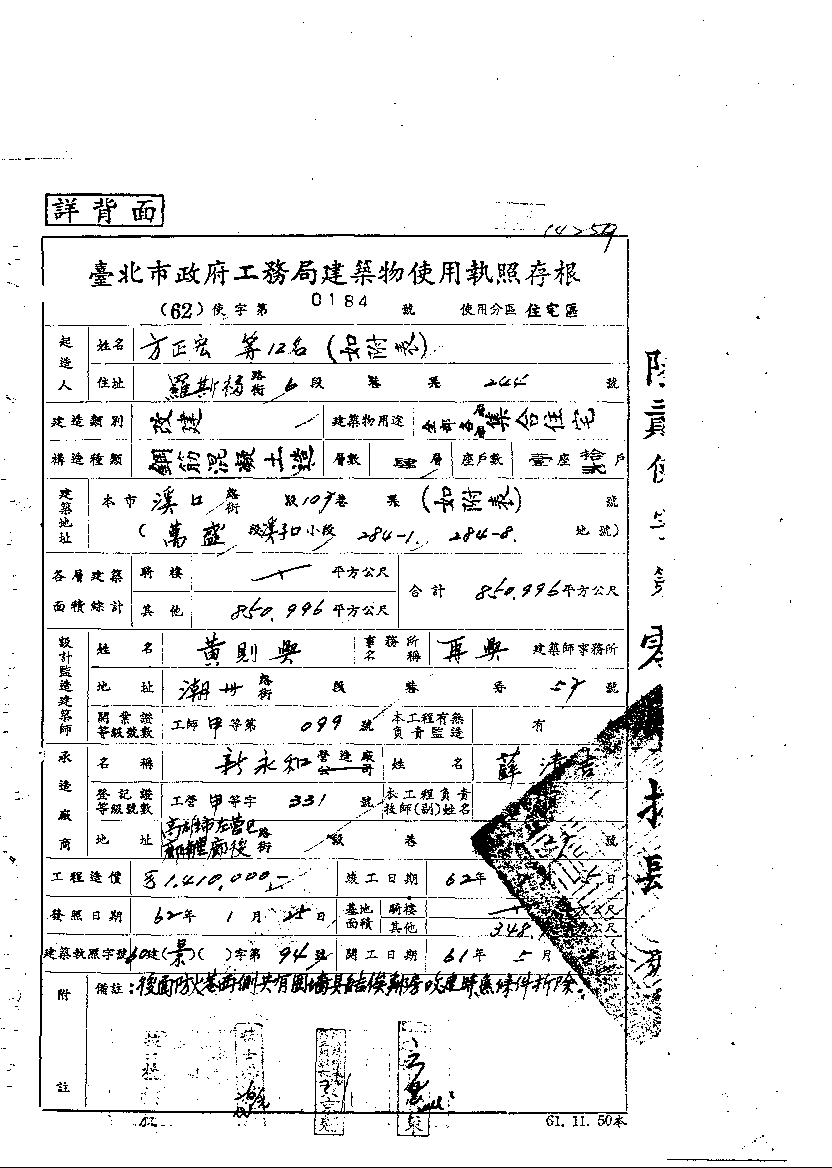 詳背面
臺北市政府工務局建築物使用執照存根
(62)使字第 0184 號 使用分區 住宅區
起造人 姓名 方正宏 等12名 (如附表)
住址 羅斯福路街 6 段 巷 244 號
建造類別 改建 建築物用途 全部各層集合住宅
構造種類 鋼筋混凝土造 層數 肆層 座戶數 壹座拾戶
建築地址 本市 溪口 路街 段 巷 (如附表) 號
(萬盛段溪子口小段 284-1. 284-8. 地號)
各層建築面積綜計 騎樓 平方公尺 合計 850.996平方公尺
其他 850.996平方公尺
設計監造建築師 姓名 黃則興 事務所名稱 再興 建築師事務所
地址 潮州 路街 段 巷 號
開業證等級號數 工師甲等第 099 號 本工程有無負責監造 有
承造廠商 名稱 新永和營造廠公司 姓名 薛
登記證等級號數 工營甲等字 331 號 本工程負責技師(副)姓名
地址 高雄市左營區 路街 段 巷 號
工程造價 $1,410,000- 竣工日期 62年 日
發照日期 62年 1月 25日 基地面積 騎樓
其他 348. 公尺
建築執照字號 60建(景)( )字第 94號 開工日期 61年 5月 日
附註 備註:後面防火巷兩側共有圍牆具結俟鄰房改建時無條件拆除.
61. 11. 50本